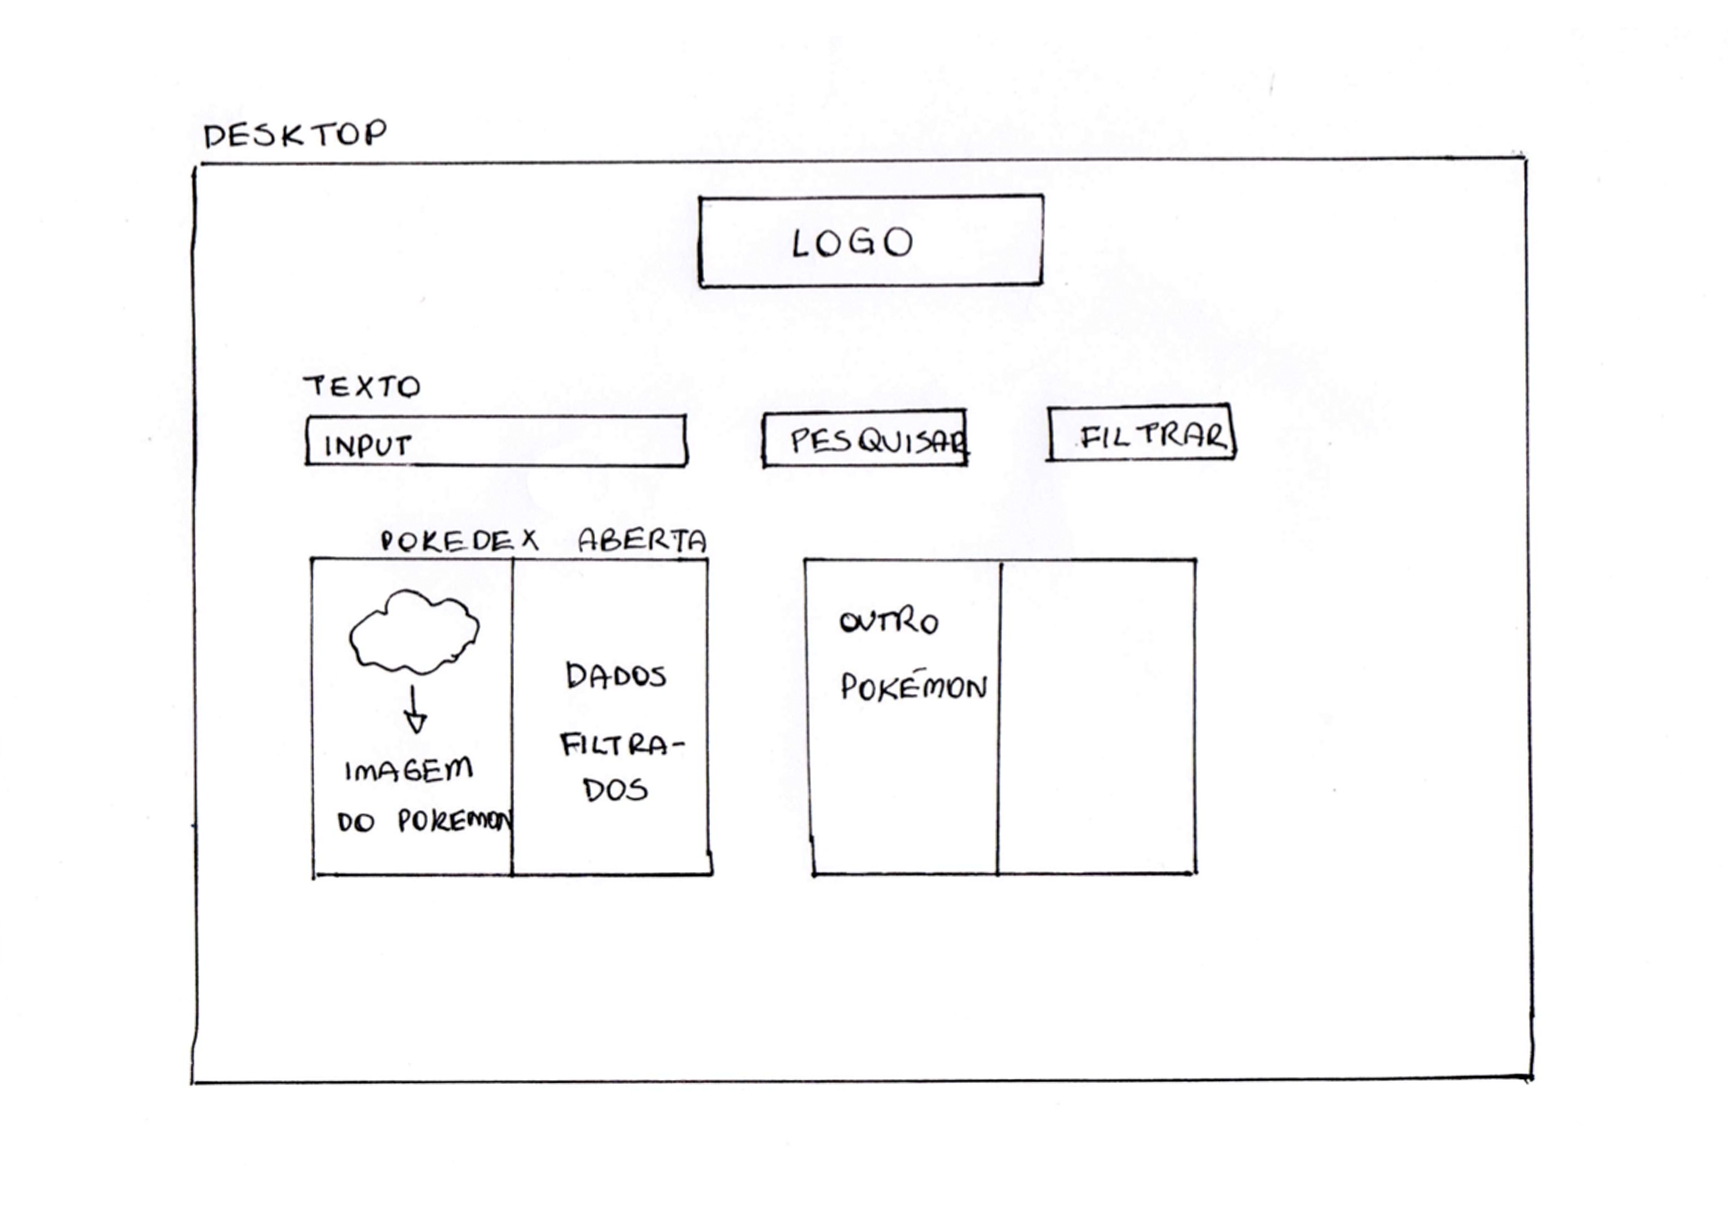 DESKTOP
LOGO
TEXTO
INPUT
PESQUISAR
FILTRAR
POKEDEX ABERTA
IMAGEM
DO POKEMON
DADOS
FILTRA-
DOS
OUTRO
POKÉMON